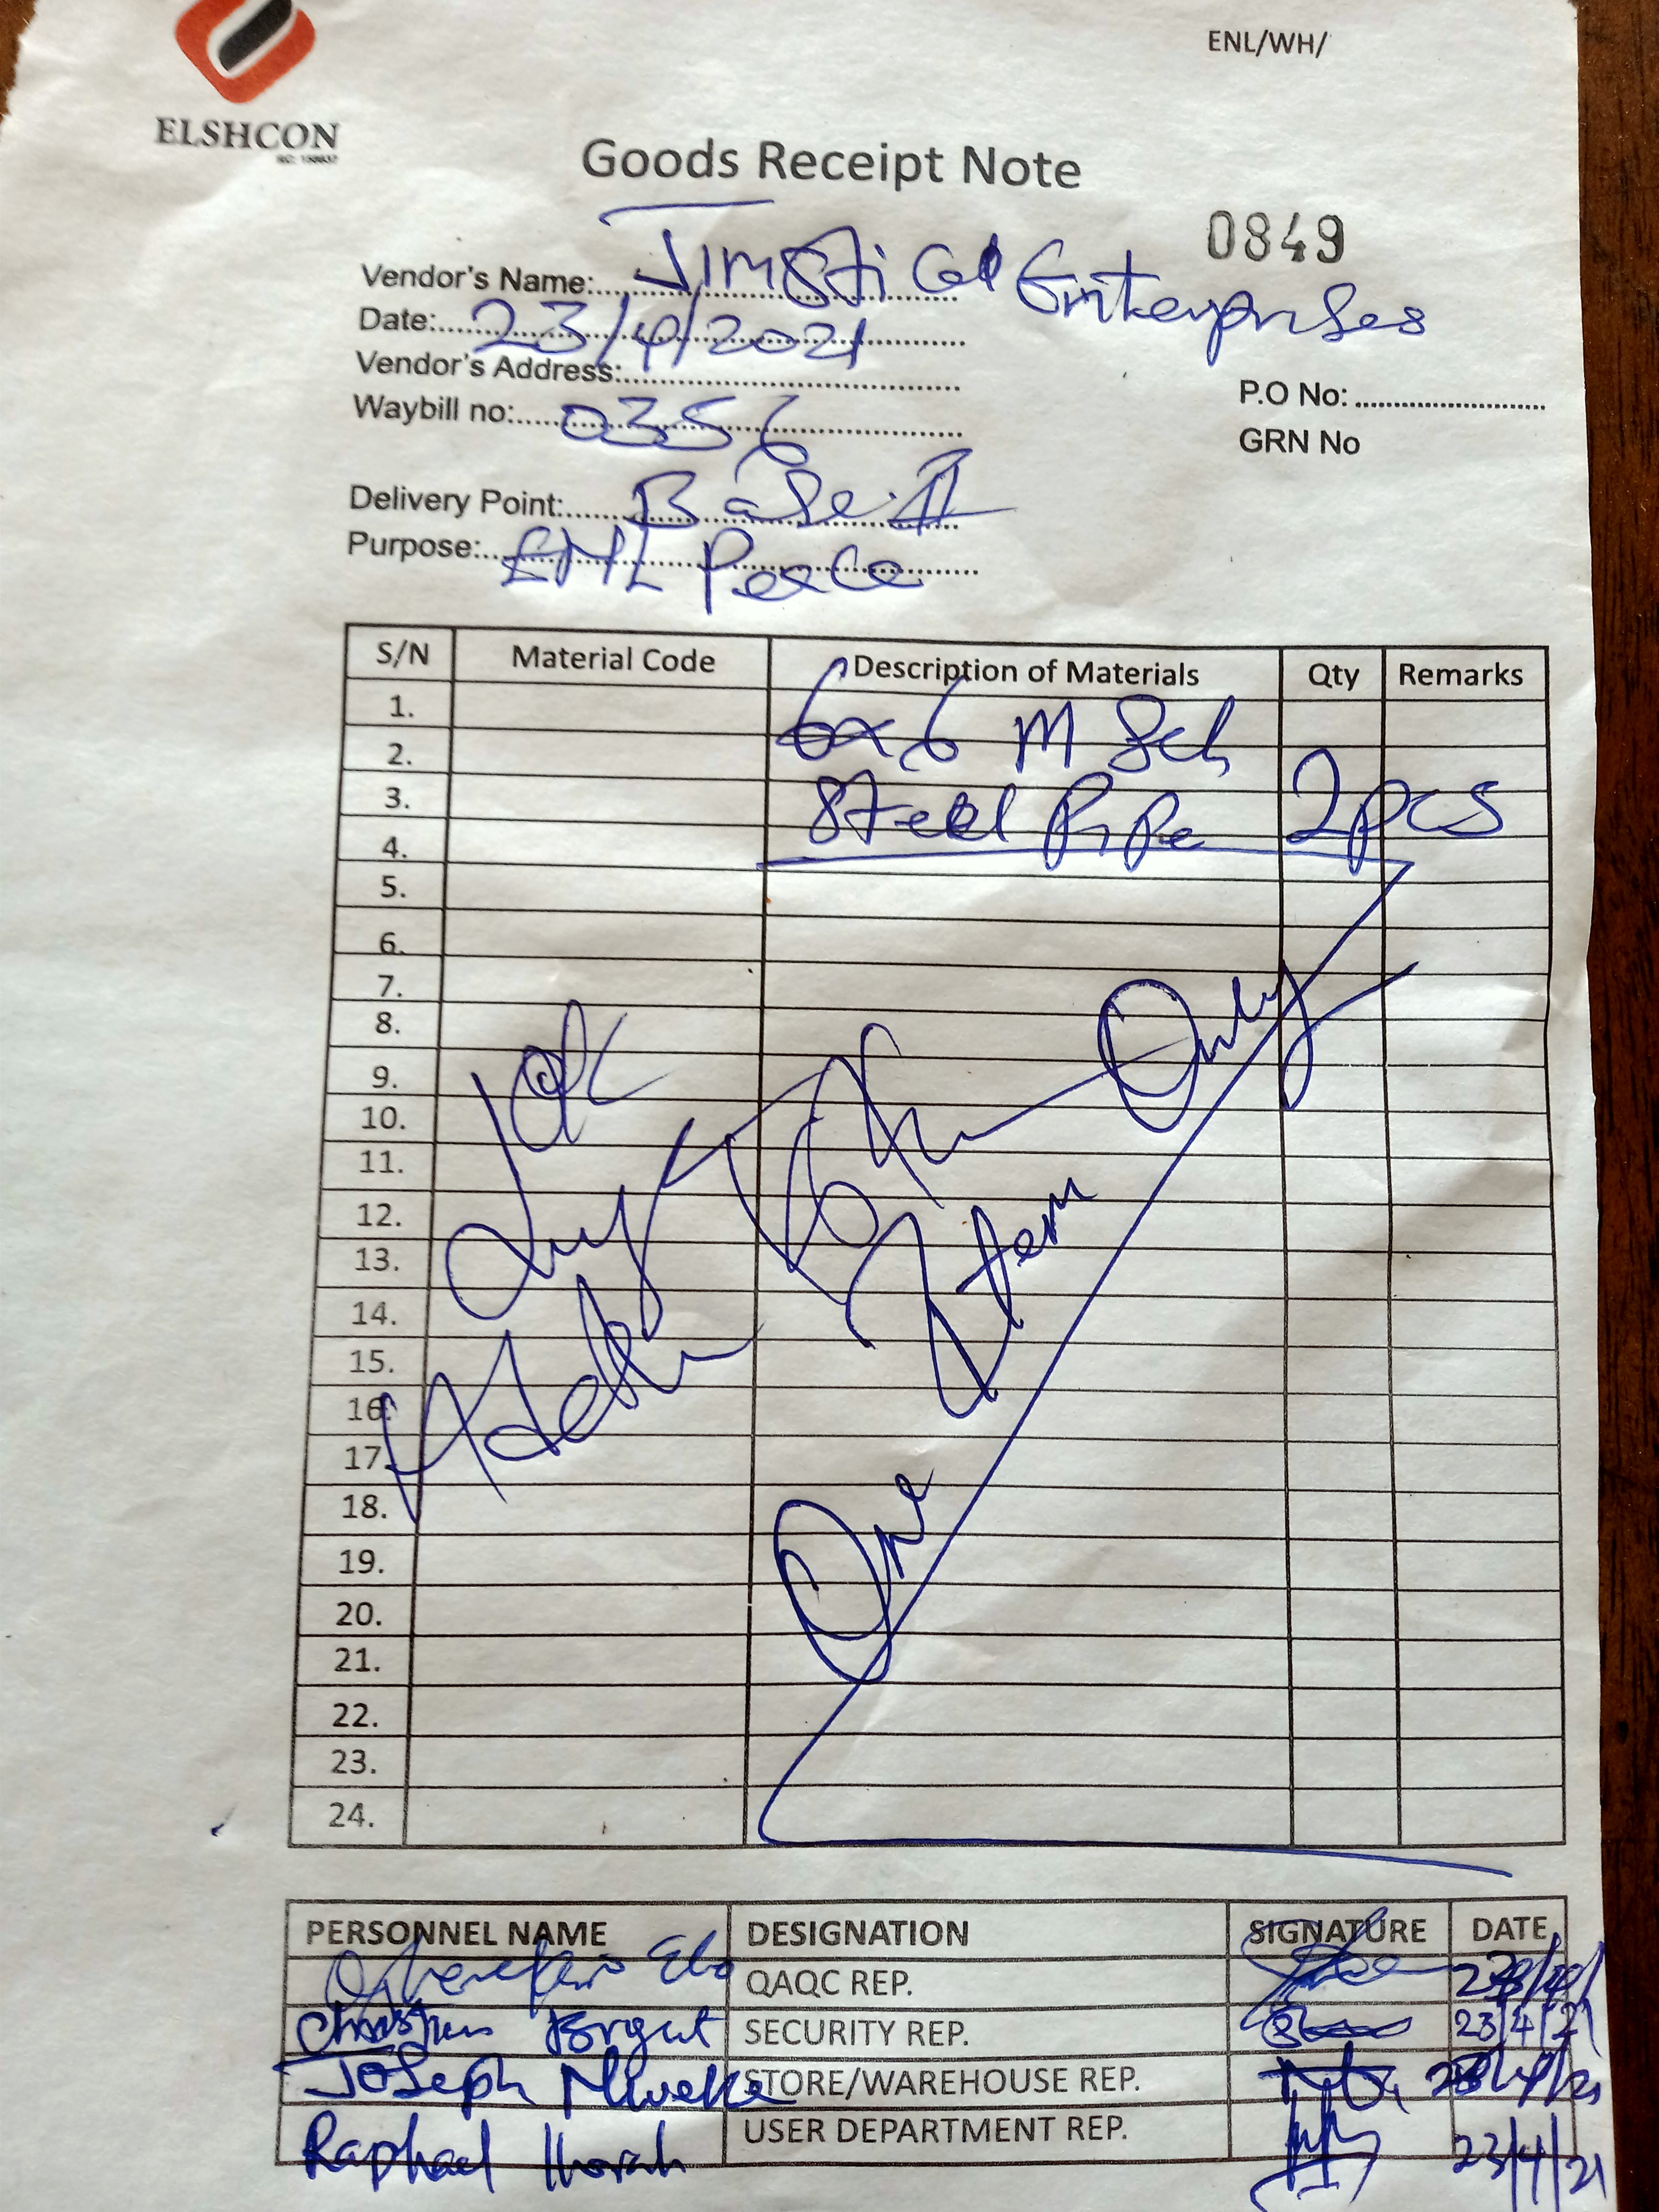 ENL/WH/
ELSHCON
RC: 156637
Goods Receipt Note
0849
Vendor's Name: Jimsti Enterprises
Date: 23/4/2021
Vendor's Address:
Waybill no: 0356
P.O No:
GRN No
Delivery Point: Base II
Purpose: ENL Peace
S/N Material Code Description of Materials Qty Remarks
1. 6x6 M Sch
2.
3. Steel Pipe 2pcs
4.
5.
6.
7.
8.
9.
10.
11.
12.
13.
14.
15.
16.
17.
18.
19.
20.
21.
22.
23.
24.
One Item Only
PERSONNEL NAME DESIGNATION SIGNATURE DATE
QAQC REP.
Christian SECURITY REP. 23/4/21
Joseph Nweke STORE/WAREHOUSE REP.
Raphael USER DEPARTMENT REP. 23/4/21